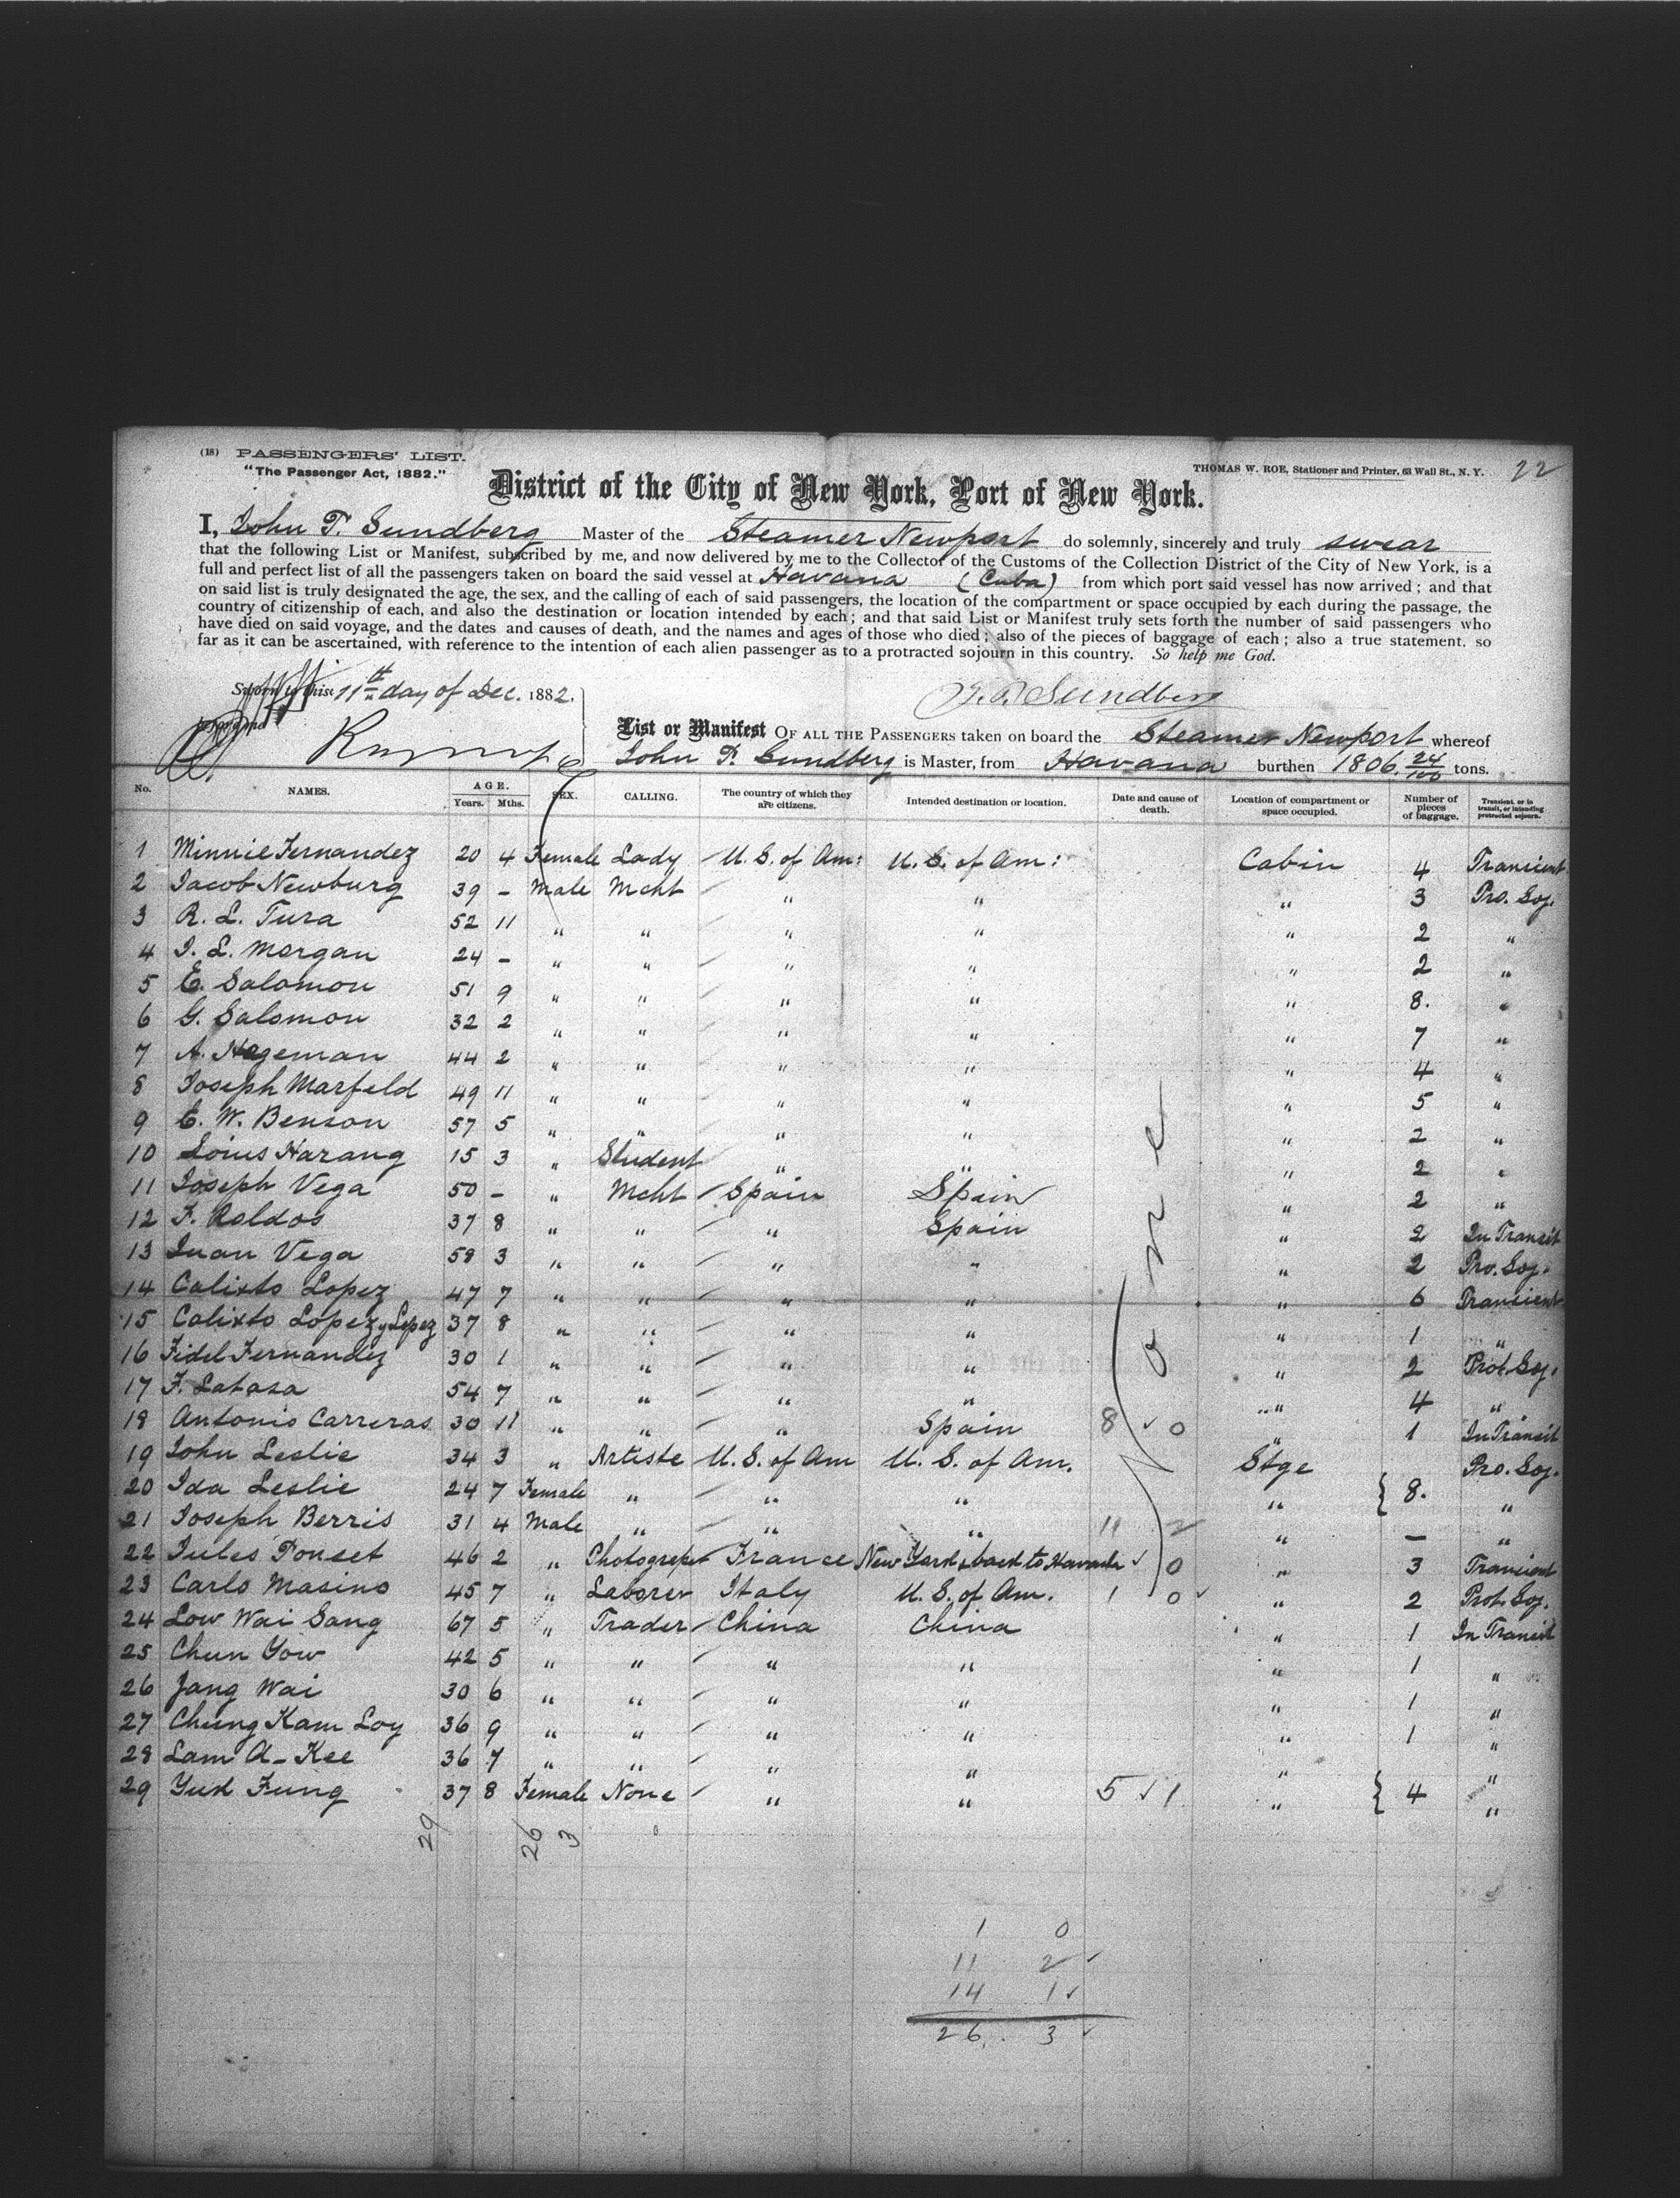 (18) PASSENGERS' LIST.
"The Passenger Act, 1882."
THOMAS W. ROE, Stationer and Printer, 63 Wall St., N. Y. 22
District of the City of New York, Port of New York.
I, John P. Sundberg Master of the Steamer Newport do solemnly, sincerely and truly swear
that the following List or Manifest, subscribed by me, and now delivered by me to the Collector of the Customs of the Collection District of the City of New York, is a
full and perfect list of all the passengers taken on board the said vessel at Havana (Cuba) from which port said vessel has now arrived; and that
on said list is truly designated the age, the sex, and the calling of each of said passengers, the location of the compartment or space occupied by each during the passage, the
country of citizenship of each, and also the destination or location intended by each; and that said List or Manifest truly sets forth the number of said passengers who
have died on said voyage, and the dates and causes of death, and the names and ages of those who died; also of the pieces of baggage of each; also a true statement, so
far as it can be ascertained, with reference to the intention of each alien passenger as to a protracted sojourn in this country. So help me God.
Sworn to this 11th day of Dec. 1882.
J. P. Sundberg
List or Manifest OF ALL THE PASSENGERS taken on board the Steamer Newport whereof
John P. Sundberg is Master, from Havana burthen 1806. 24/100 tons.
No. NAMES. AGE. Years. Mths. SEX. CALLING. The country of which they are citizens. Intended destination or location. Date and cause of death. Location of compartment or space occupied. Number of pieces of baggage. Transient, or in transit, or intending protracted sojourn.
1 Minnie Fernandez 20 4 Female Lady U. S. of Am: U. S. of Am: Cabin 4 Trancient
2 Jacob Newburg 39 - Male Mcht " " " 3 Pro. Soj.
3 R. L. Tura 52 11 " " " " " 2 "
4 J. L. Morgan 24 - " " " " " 2 "
5 E. Salomon 51 9 " " " " " 8. "
6 G. Salomon 32 2 " " " " " 7 "
7 A. Hageman 44 2 " " " " " 4 "
8 Joseph Marfeld 49 11 " " " " " 5 "
9 E. W. Benson 57 5 " " " " " 2 "
10 Louis Harang 15 3 " Student " " " 2 "
11 Joseph Vega 50 - " Mcht Spain Spain " 2 "
12 F. Roldos 37 8 " " " Spain " 2 In Transit
13 Juan Vega 58 3 " " " " " 2 Pro. Soj.
14 Calixto Lopez 47 7 " " " " " 6 Transient
15 Calixto Lopez y Lopez 37 8 " " " " " 1 "
16 Fidel Fernandez 30 1 " " " " " 2 Prot. Soj.
17 F. Latasa 54 7 " " " " " 4 "
18 Antonio Carreras 30 11 " " " Spain 8 0 " 1 In Transit
19 John Leslie 34 3 " Artiste U. S. of Am U. S. of Am. Stge Pro. Soj.
20 Ida Leslie 24 7 Female " " " " 8. "
21 Joseph Berris 31 4 Male " " " 11 2 " — "
22 Jules Ponset 46 2 " Photograper France New York & back to Havana 0 " 3 Transient
23 Carlo Masino 45 7 " Laborer Italy U. S. of Am. 1 0 " 2 Prot. Soj.
24 Low Wai Sang 67 5 " Trader China China " 1 In Transit
25 Chun Yow 42 5 " " " " " 1 "
26 Jang Wai 30 6 " " " " " 1 "
27 Chung Kam Loy 36 9 " " " " " 1 "
28 Lam A-Kee 36 7 " " " " " "
29 Yuk Fung 37 8 Female None " " 5 1 " 4 "
None
29 26 3
1 0
11 2
14 1
26. 3